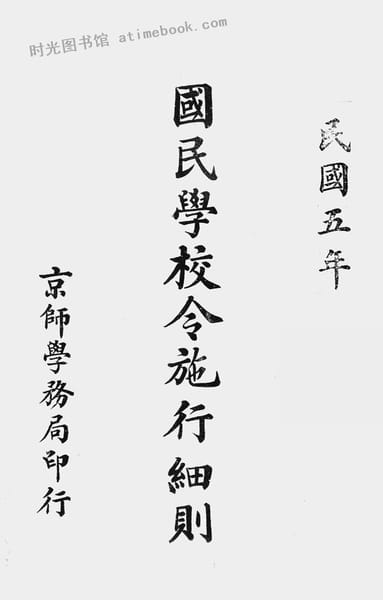 时光图书馆 atimebook.com
民國五年
國民學校令施行細則
京師學務局印行